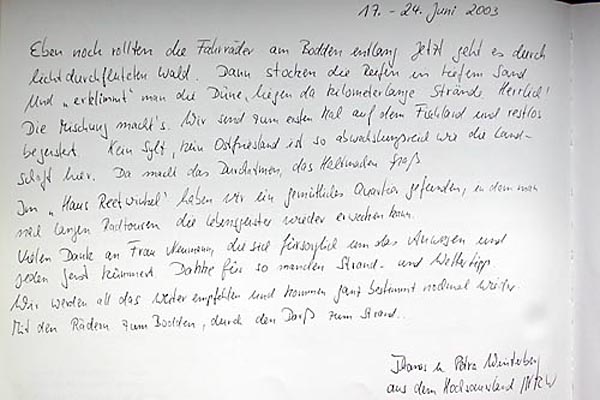 17. - 24. Juni 2003
Eben noch rollten die Fahrräder am Bodden entlang. Jetzt geht es durch
lichtdurchfluteten Wald. Dann stocken die Reifen in tiefem Sand.
Und „erklimmt" man die Düne, liegen da kilometerlange Strände. Herrlich!
Die Mischung macht's. Wir sind zum ersten Mal auf dem Fischland und restlos
begeistert. Kein Sylt, kein Ostfriesland ist so abwechslungsreich wie die Land-
schaft hier. Da macht das Durchatmen, das Haltmachen Spaß
Im „Haus Reetwinkel" haben wir ein gemütliches Quartier gefunden, in dem man
nach langen Radtouren die Lebensgeister wieder erwecken kann.
Vielen Dank an Frau Neumann, die sich fürsorglich um das Anwesen und
jeden Gast kümmert. Danke für so manchen Strand- und Wettertipp.
Wir werden all das weiter empfehlen und kommen ganz bestimmt nochmal wieder.
Mit den Rädern zum Bodden, durch den Darß zum Strand..
Petra Winterberg
aus dem Hochsauerland / NRW